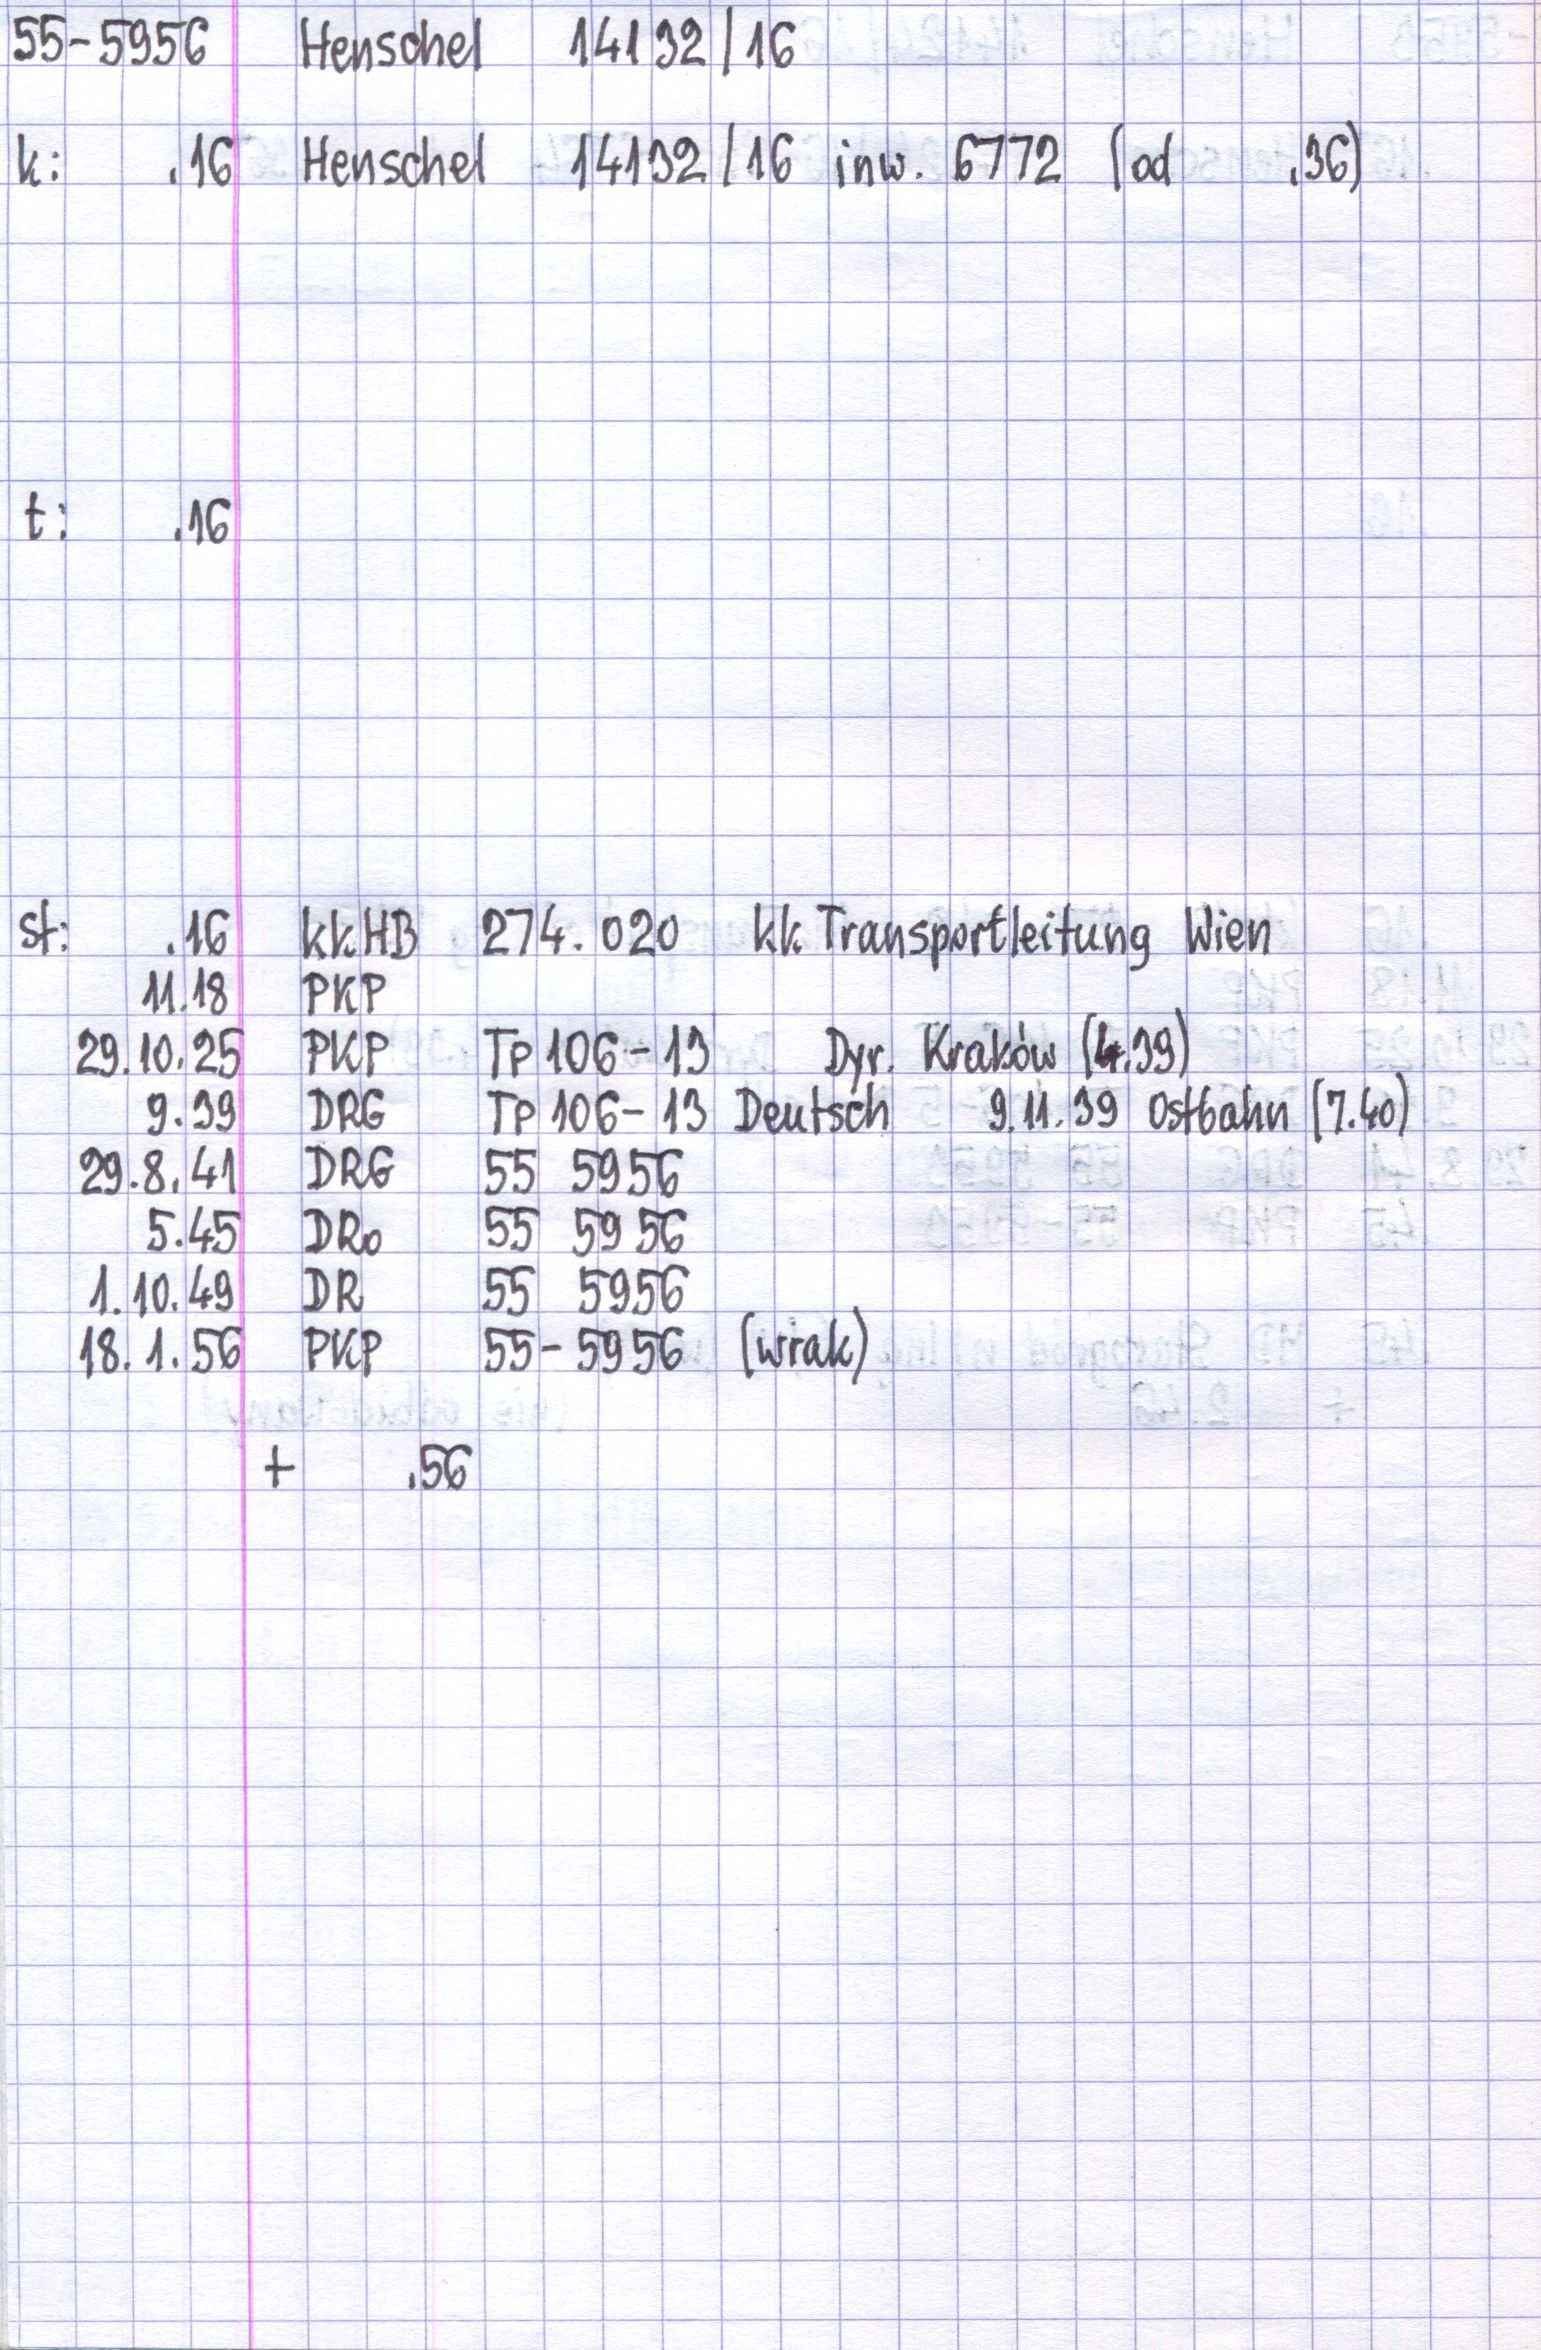 55-5956 Henschel 14132/16
k: .16 Henschel 14132/16 inw. 6772 (od .36)
t: .16
st: .16 kkHB 274.020 kk Transportleitung Wien
11.18 PKP
29.10.25 PKP Tp 106-13 Dyr. Kraków (4.39)
9.39 DRG Tp 106-13 Deutsch 9.11.39 Ostbahn (7.40)
29.8.41 DRG 55 5956
5.45 DRo 55 5956
1.10.49 DR 55 5956
18.1.56 PKP 55-5956 (wrak)
+ .56